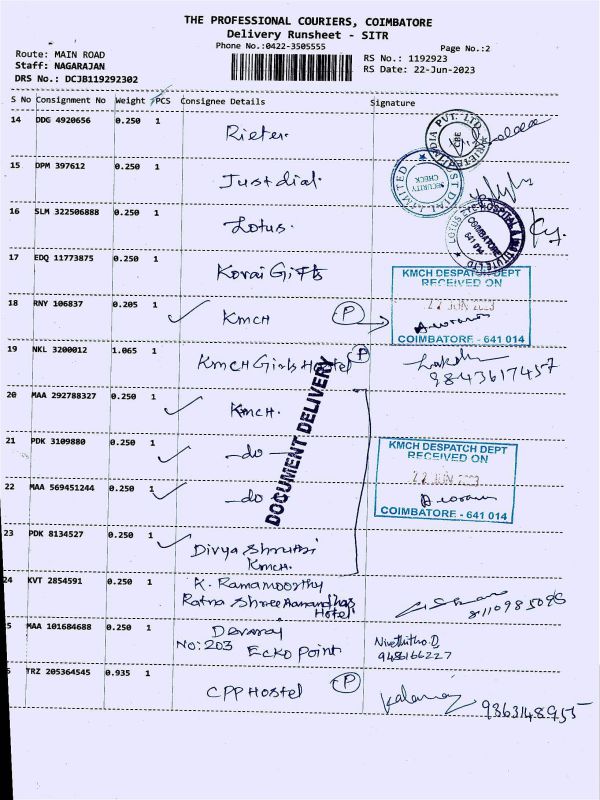 THE PROFESSIONAL COURIERS, COIMBATORE
Delivery Runsheet - SITR
Phone No.:0422-3505555
Page No.:2
Route: MAIN ROAD
Staff: NAGARAJAN
DRS No.: DCJB119292302
RS No.: 1192923
RS Date: 22-Jun-2023
S No Consignment No Weight PCS Consignee Details Signature
14 DDG 4920656 0.250 1 Rieter.
INDIA PVT. LTD
CBE
15 DPM 397612 0.250 1 Justdial.
SECURITY CHECK
16 SLM 322506888 0.250 1 Lotus.
LOTUS EYE HOSPITAL & INSTITUTE LTD
COIMBATORE 641 014
17 EDQ 11773875 0.250 1 Kovai Gifts
KMCH DESPATCH DEPT
RECEIVED ON
22 JUN 2023
COIMBATORE - 641 014
18 RNY 106837 0.205 1 KMCH P
19 NKL 3200012 1.065 1 KMCH Girls Hostel P
9843617457
DOCUMENT DELIVERY
20 MAA 292788327 0.250 1 KMCH.
21 PDK 3109880 0.250 1 -do-
KMCH DESPATCH DEPT
RECEIVED ON
22 JUN 2023
COIMBATORE - 641 014
22 MAA 569451244 0.250 1 -do
23 PDK 8134527 0.250 1 Divya Shruthi
KMCH.
24 KVT 2854591 0.250 1 K. Ramamoorthy
Ratna Shree Hotel
5 MAA 101684688 0.250 1 Devaraj
No:203 Ecko Point
9486166227
TRZ 205364545 0.935 1 CPP Hostel P
9863148955